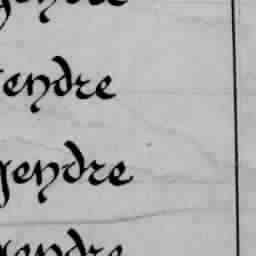 gendre
endre
gendre
gendre